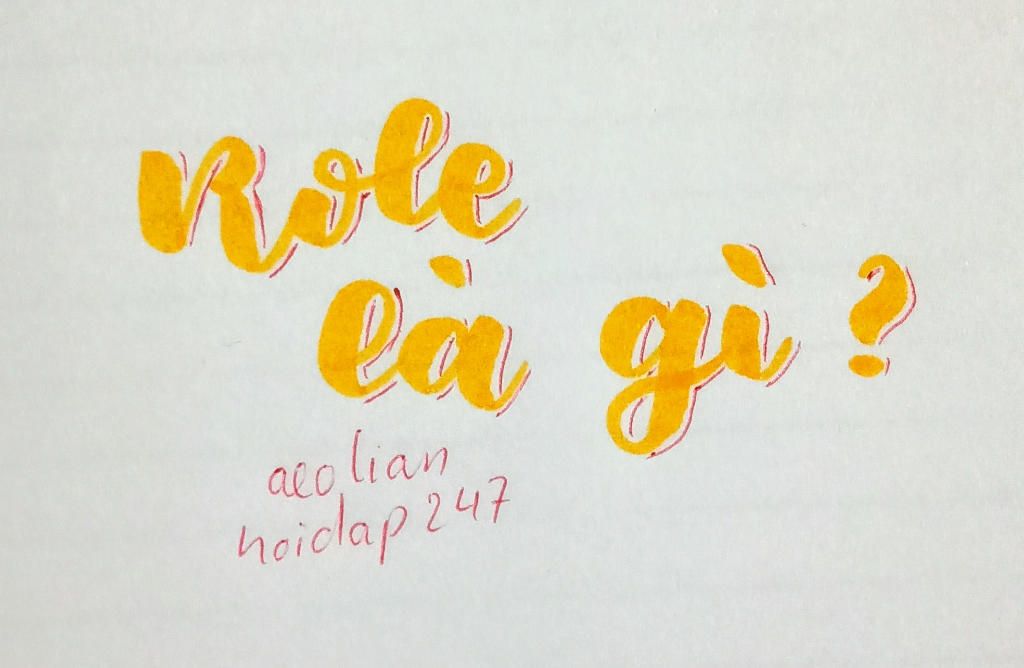 Role
là gì?
aeolian
hoidap247